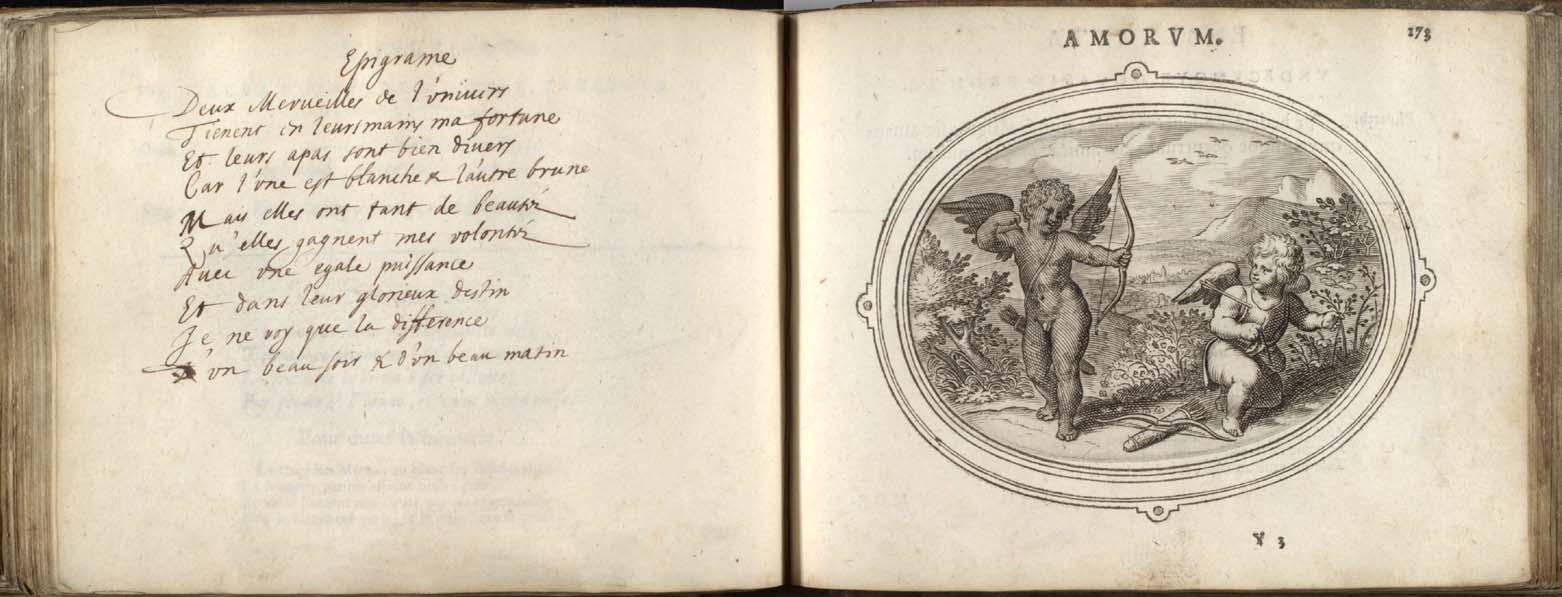 Epigrame
Deux Merveilles de l'univers
Tienent en leurs mains ma fortune
Et leurs apas sont bien divers
Car l'une est blanche & l'autre brune
Mais elles ont tant de beauté
Qu'elles gagnent mes volonté
Avec une egale puissance
Et dans leur glorieux destin
Je ne voy que la difference
D'un beau soir & d'un beau matin
AMORVM.
173
Y 3